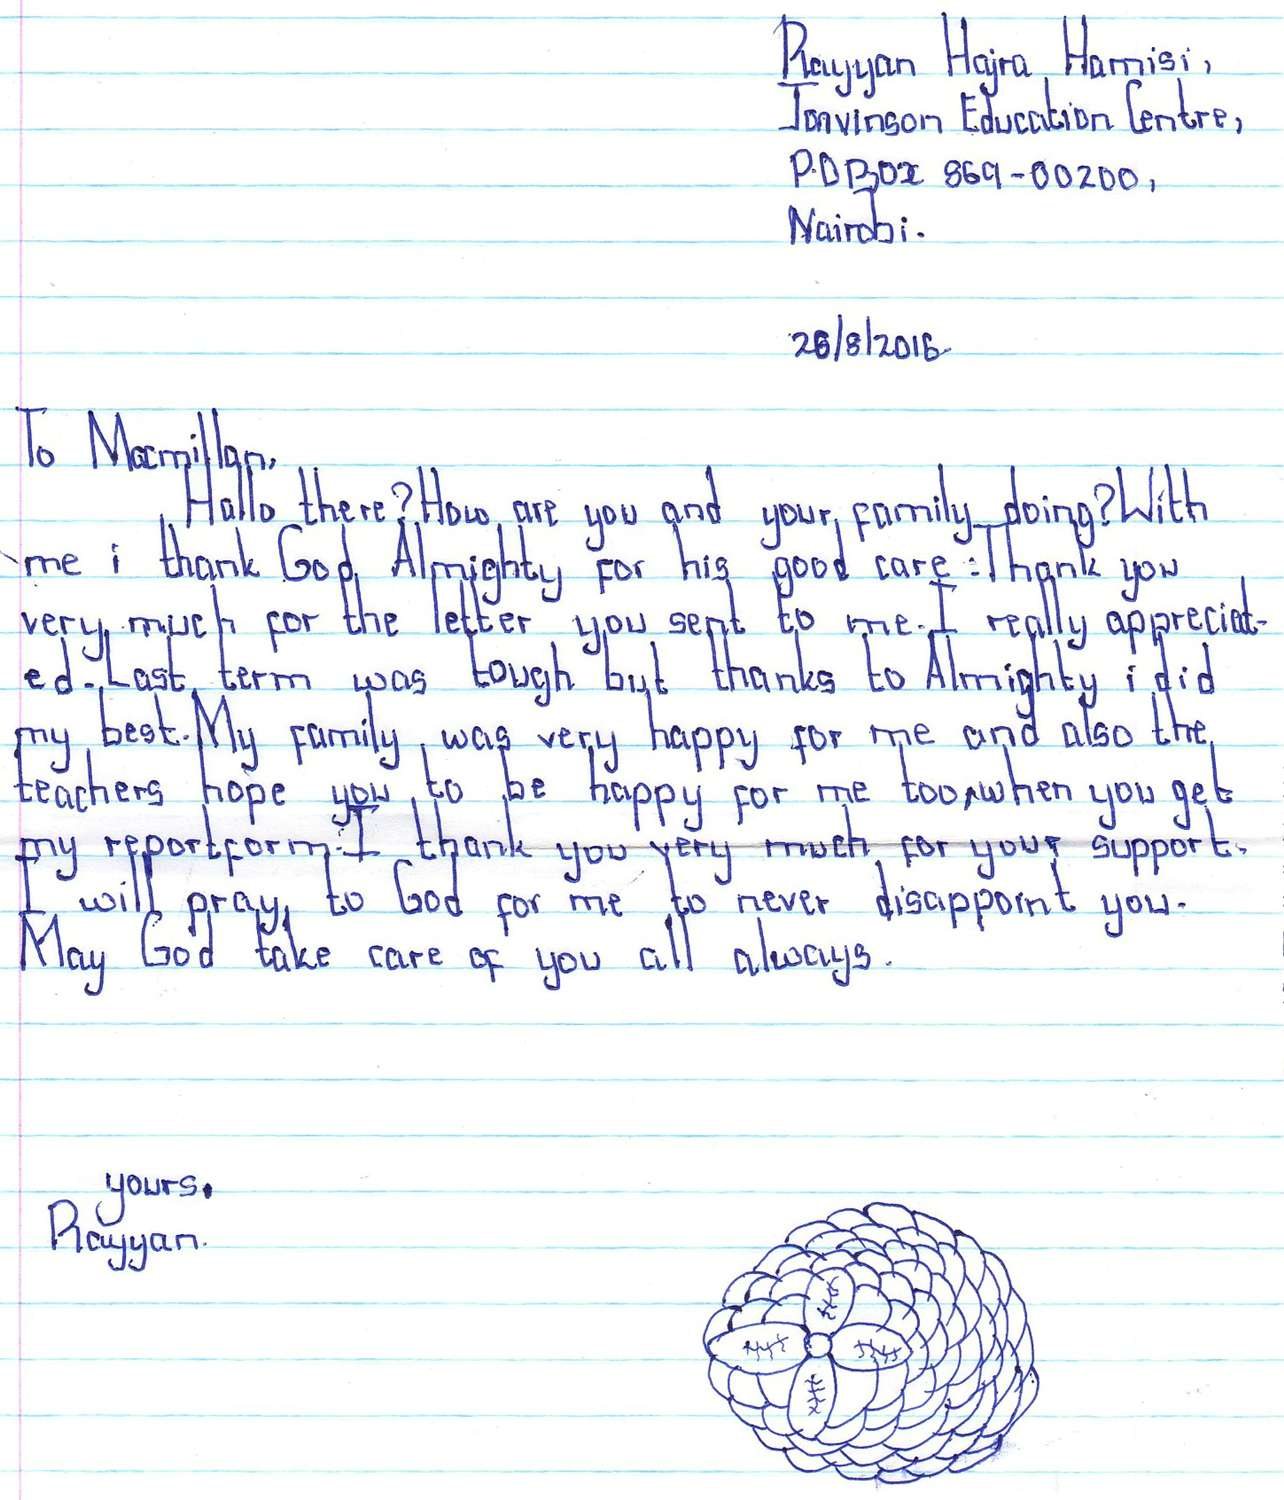 Rayyan Hajra Hamisi,
Jonvinson Education Centre,
P.O Box 869-00200,
Nairobi.
26/8/2016.
To Macmillan,
Hallo there? How are you and your family doing? With
me i thank God Almighty for his good care. Thank you
very much for the letter you sent to me. I really appreciat-
ed. Last term was tough but thanks to Almighty i did
my best. My family was very happy for me and also the
teachers hope you to be happy for me too, when you get
my reportform. I thank you very much for your support.
I will pray to God for me to never disappoint you.
May God take care of you all always.
yours.
Rayyan.